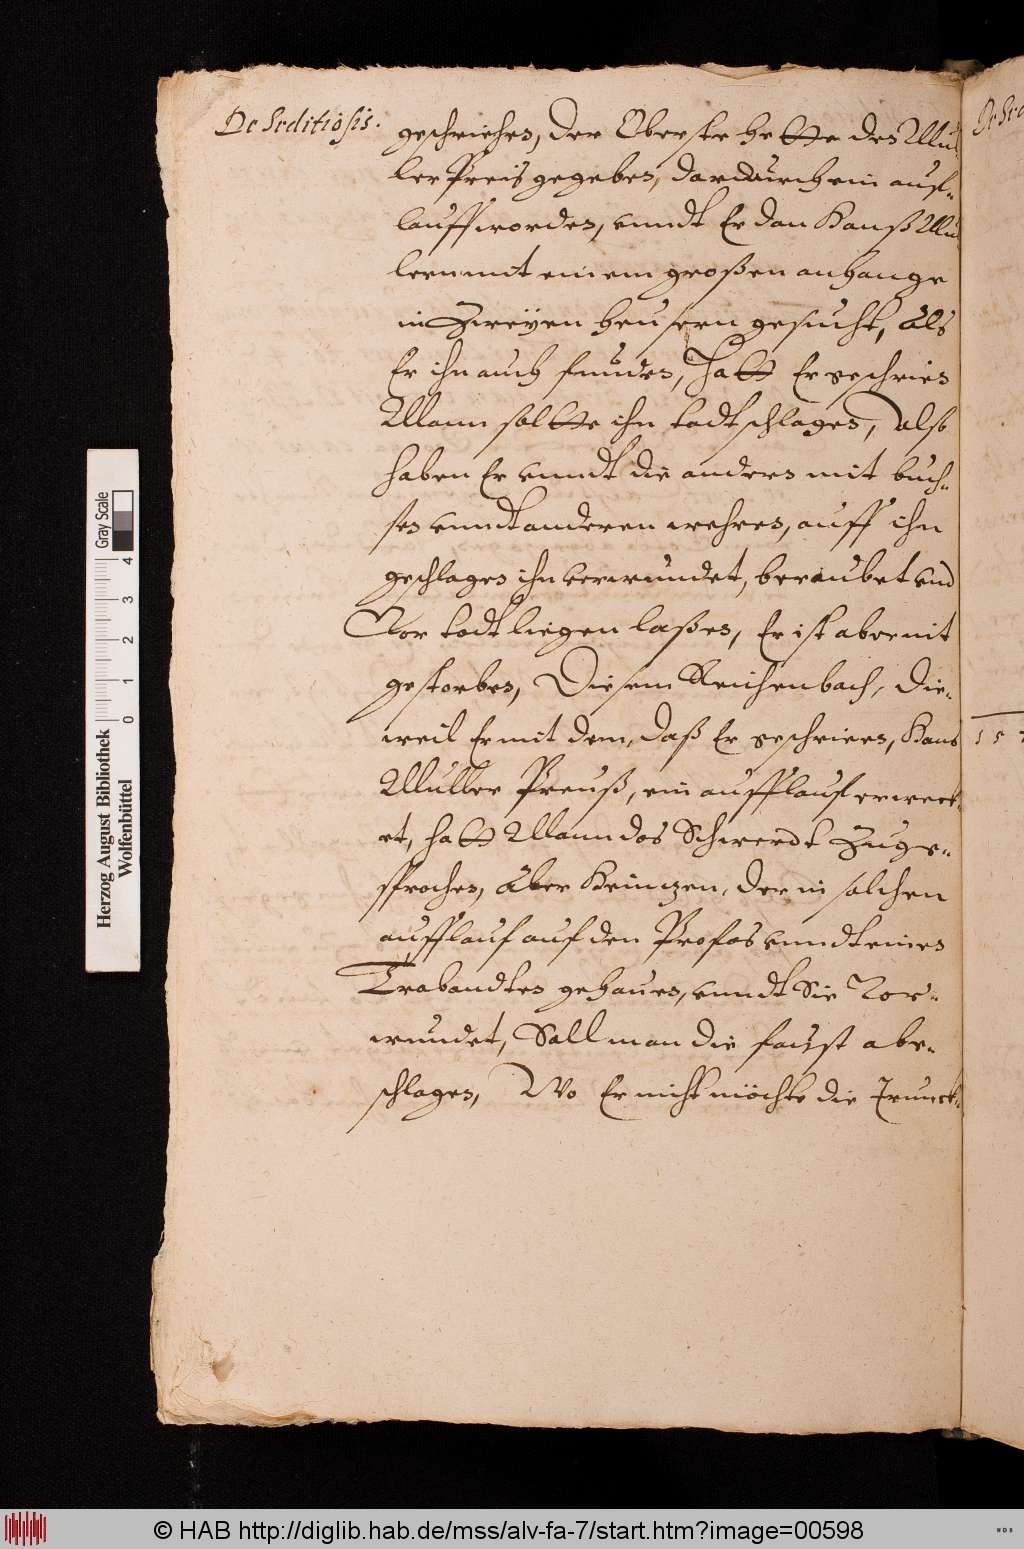 De Seditiosis.
geschriehen, Der Oberste hette den Mül
ler Preis gegeben, dardurch ein auf-
lauff worden, vnndt Er dan Hanß Mül
lern mit einem großen anhange
in Zweÿen heusern gesucht, Als
Er ihn auch funden, Hatt Er geschrien
Mann soltte ihn todt schlagen, Also
haben Er vnndt die andern mit buch-
sen vnndt anderen wehren, auff ihn
geschlagen ihn verwundet, beraubet vnd
Vor todt liegen laßen, Er ist aber nit
gestorben, Diesem Reichenbach, Die-
weil Er mit dem, daß Er geschrieen, Hans
Muller Preuß, ein aufflauf erweck-
et, hatt Mann das Schwerdt Zuge-
sprochen, Aber Heintzen, der in solchen
aufflauf auf den Profos vnndt einen
Trabandten gehauen, vnndt Sie Ver-
wundet, Soll man die faust abe-
schlagen, Wo Er nicht möchte die Trunck-
De Sed
15
Gray Scale
0 1 2 3 4
Herzog August Bibliothek
Wolfenbüttel
© HAB http://diglib.hab.de/mss/alv-fa-7/start.htm?image=00598